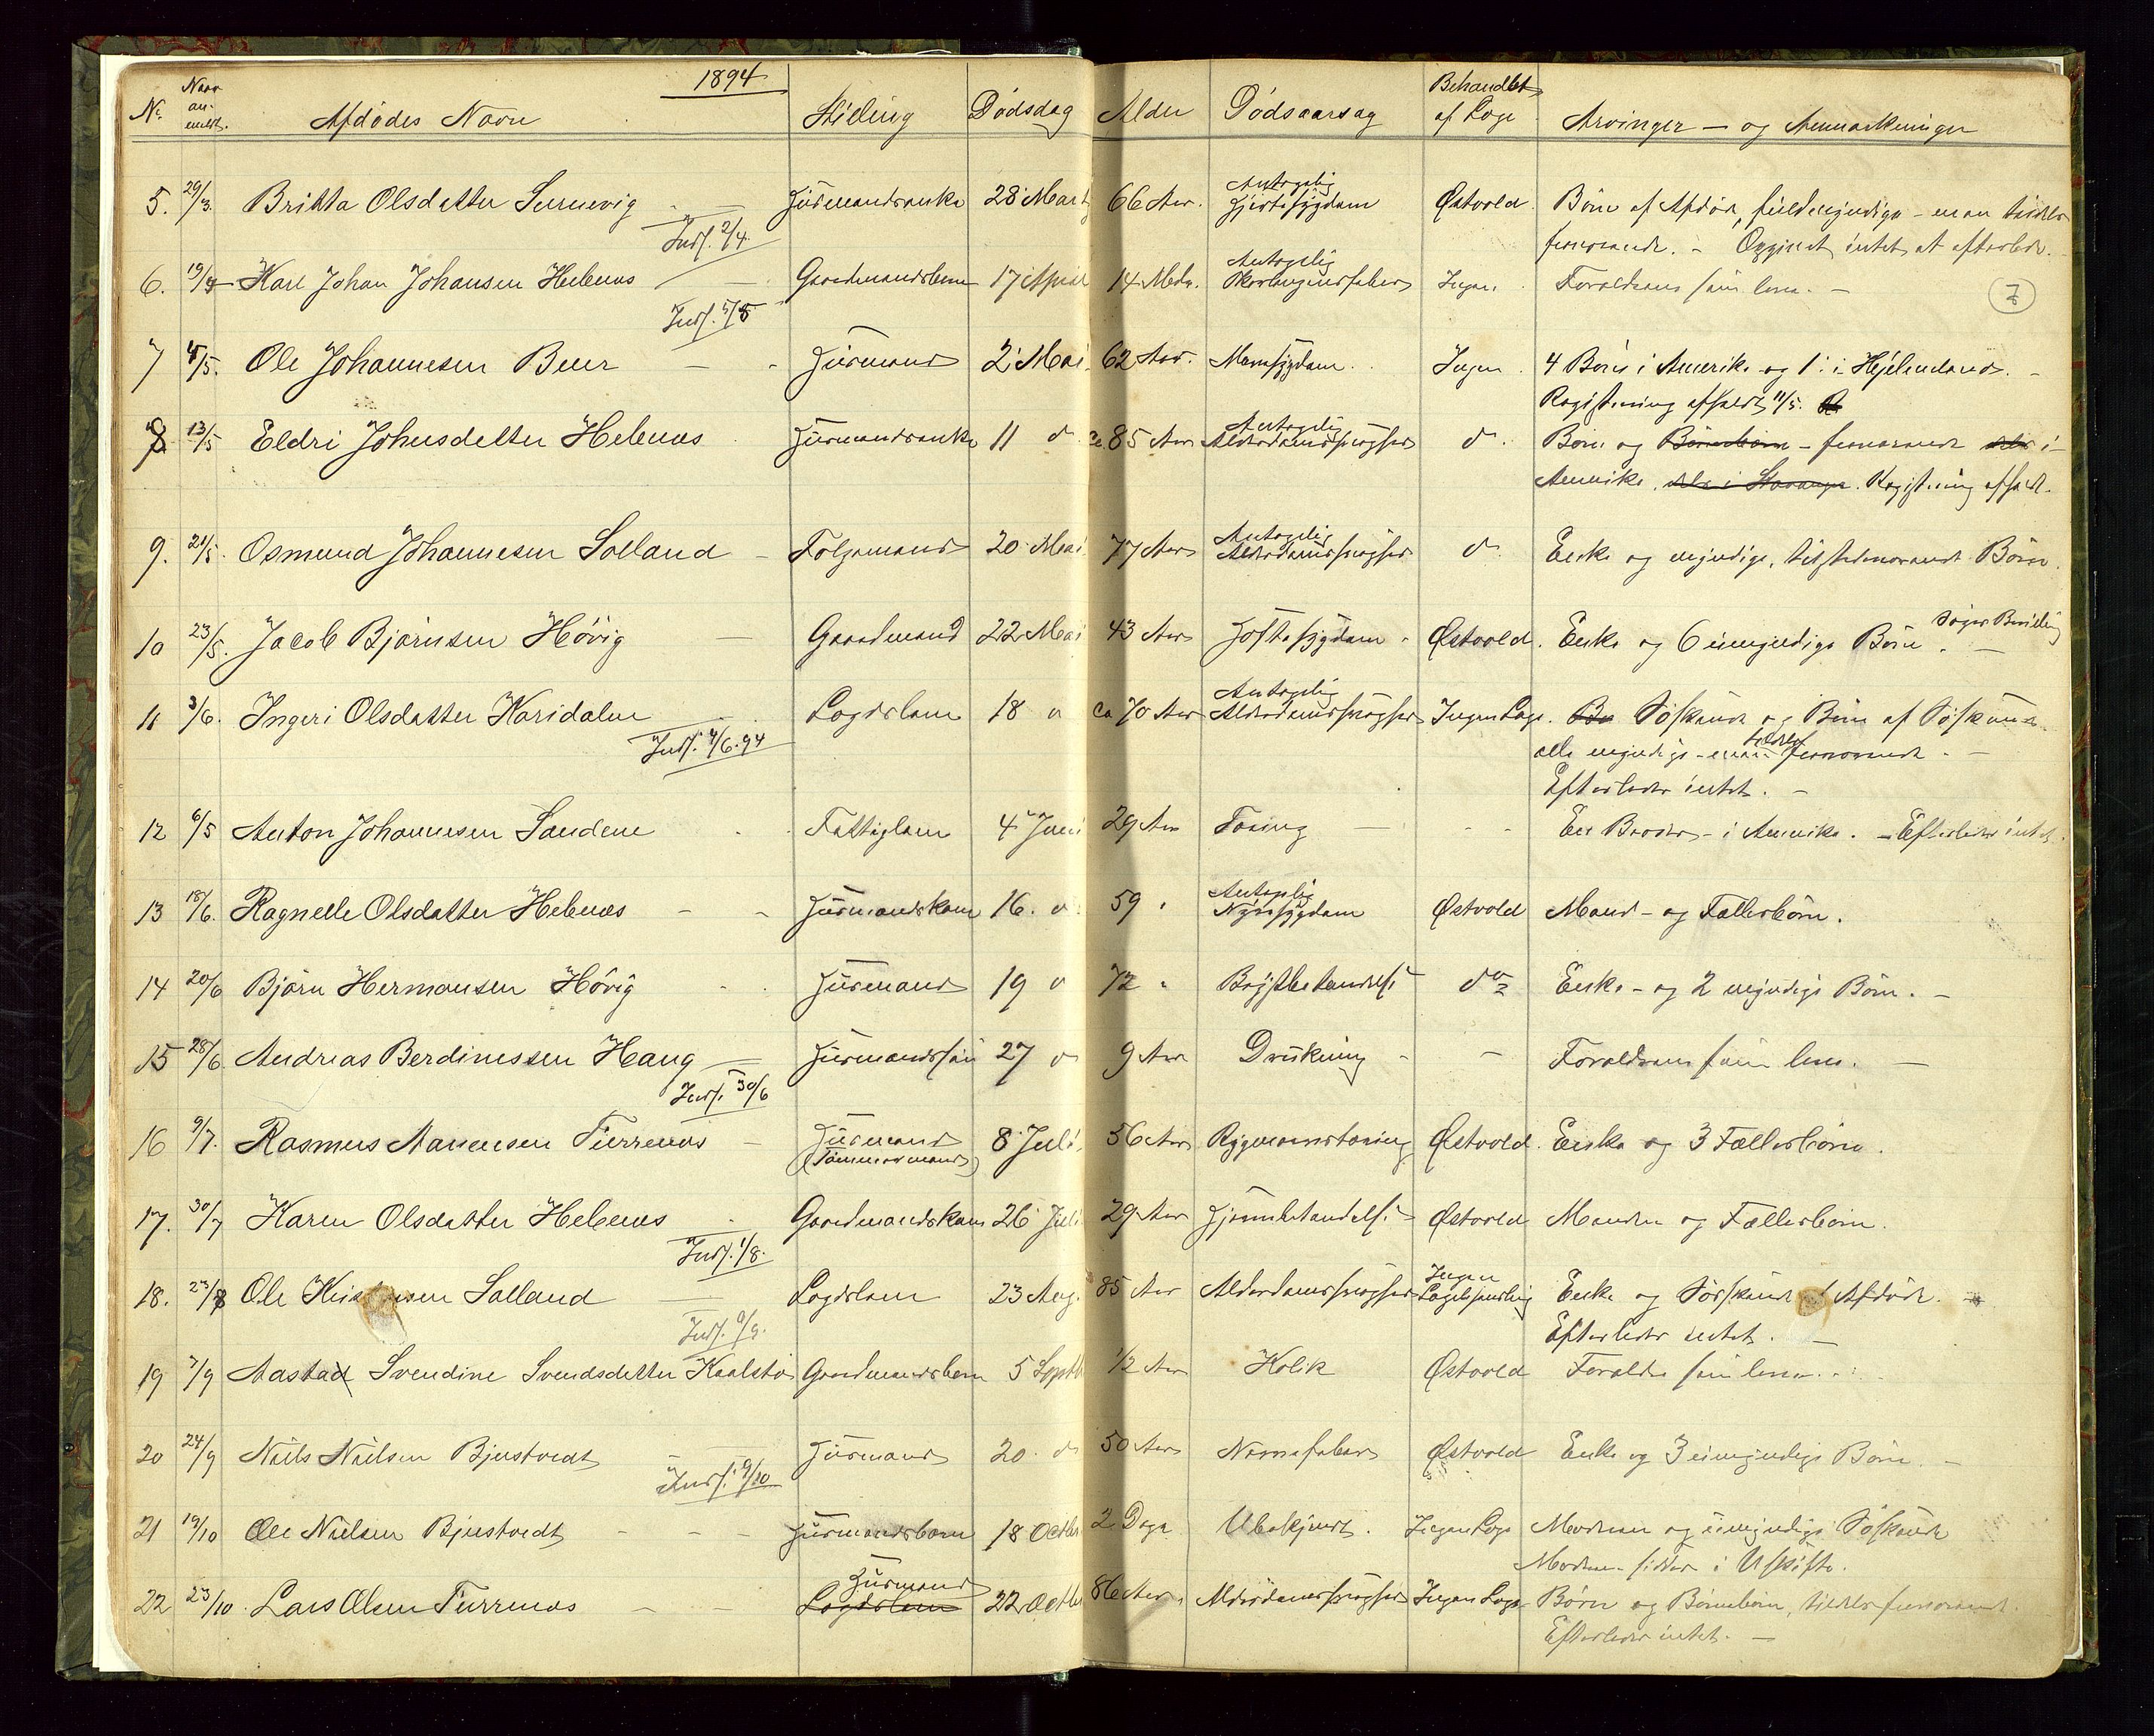 1894
No. Naar anmeldt. Afdødes Navn Stilling Dødsdag Alder Dødsaarsag Behandlet af Læge Arvinger — og Anmærkninger
5. 29/3. Britta Olsdatter Sunnevig Huusmandsenke 28 Marts 66 Aar. Antagelig Hjertesygdom Østvold Børn af Afdøde, fuldmyndige – men tildels
Indf. 2/4. fraværende. – Opgivet intet at efterlade.
6. 19/4 Karl Johan Johansen Helenæs Gaardmandsbarn 17 April 14 Mdr. Antagelig Skarlagensfeber Ingen Forældrene som leve. –
Indf. 5/5 7
7 4/5. Ole Johannesen Buer Huusmand 2 Mai 62 Aar. Mavesygdom. Ingen 4 Børn i Amerika og 1 i Hjelmeland. –
Registrering afholdt 11/5.
8 13/5 Eldri Johnsdatter Helenæs Huusmandsenke 11 do ca. 85 Aar Antagelig Alderdomssvaghed do. Børn og Børnebørn – fraværende dels i
Amerika, dels i Stavanger. Registrering afholdt.
9. 21/5. Osmund Johannesen Solland Følgemand 20 Mai 77 Aar Antagelig Alderdomssvaghed do Enke og myndige, tilstedeværende Børn.
10 23/5. Jacob Bjørnsen Høvig Gaardmand 22 Mai 43 Aar Hoftesygdom Østvold. Enke og 6 umyndige Børn. søger Bevilling
11 3/6. Ingeri Olsdatter Karidalen Lægdslem 18 do ca 70 Aar Antagelig Alderdomssvaghed Ingen Læge. Søskende og Børn af Søskende
Indf. 4/6.94 alle myndige – men tildels fraværende. –
Efterlader intet. –
12 6/5 Anton Johannesen Sandene Fattiglem 4 Juni 29 Aar Tæring – – En Broder – i Amerika. – Efterlader intet.
13 18/6. Ragnelle Olsdatter Helenæs Huusmandskone 16. do 59 " Antagelig Nyresygdom Østvold Mand – og Fællesbørn.
14 20/6 Bjørn Hermansen Høvig Huusmand 19 do 72 " Brystbetændelse do Enke – og 2 myndige Børn. –
15 28/6. Andreas Berdinessen Haug Huusmandssøn 27 do 9 Aar Drukning – Forældrene som leve. –
Indf. 30/6
16 9/7. Rasmus Mausensen Turrenæs Huusmand (Tømmermand) 8 Juli 56 Aar Rygmarvstæring Østvold Enke og 3 Fællesbørn.
17. 30/7 Karen Olsdatter Helenæs Gaardmandskone 26 Juli 29 Aar Hjernebetændelse Østvold Manden og Fællesbørn.
Indf. 1/8.
18. 23/8 Ole Solland Lægdslem 23 Aug. 85 Aar Alderdomssvaghed Ingen Lægebehandling Enke og Søskende Afdøde.
Indf. 9/9. Efterlader intet. –
19 7/9 Aastad Svendine Svendsdatter Kaalstø Gaardmandsbarn 5 Septb 1/2 Aar Kolik Østvold Forældre som leve.
20 24/9 Niels Nielsen Bjustvedt Huusmand 20. do 50 Aar Nervefeber Østvold Enke og 3 umyndige Børn. –
Indf. 9/10
21 19/10 Ole Nielsen Bjustvedt Huusmandsbarn 18 Octbr 2 Dage Ubekjendt. Ingen Læge Moderen og umyndige Søskende
Moderen sidder i Uskifte.
22 23/10. Lars Olsen Turrenæs Huusmand Lægdslem 22 Octbr 86 Aar. Alderdomssvaghed Ingen Læge Børn og Børnebørn, tildels fraværende.
Efterlader intet. –